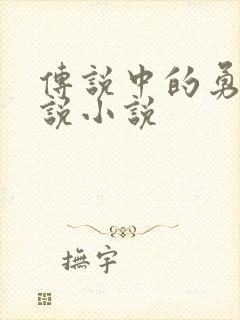 傳說中的勇
說小說
撫宇